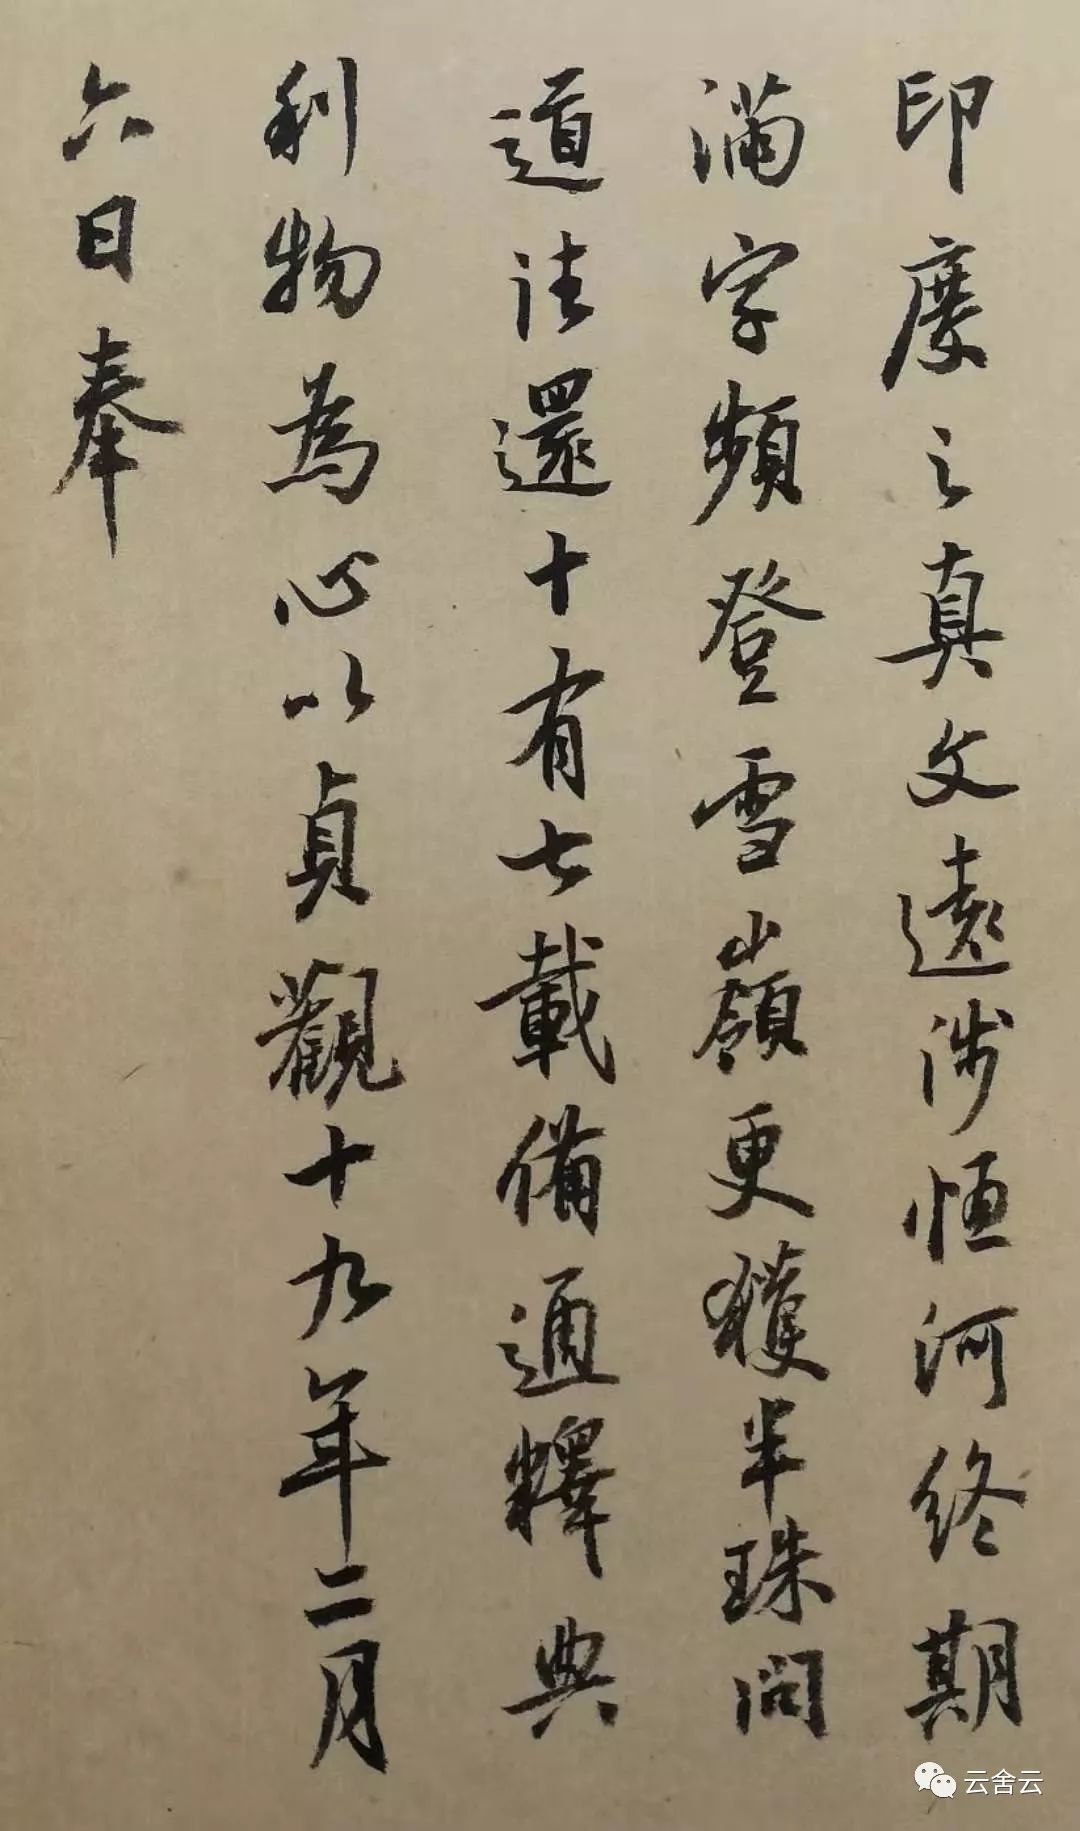 印度之真文遠涉恒河終期
滿字頻登雪嶺更獲半珠問
道法還十有七載備通釋典
利物為心以貞觀十九年二月
六日奉
云舍云